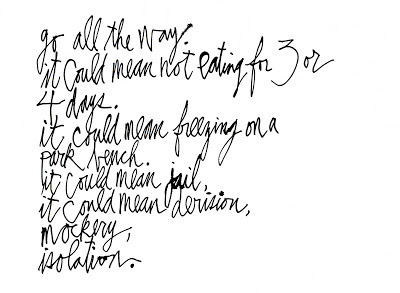 go all the way.
it could mean not eating for 3 or
4 days.
it could mean freezing on a
park bench.
it could mean jail,
it could mean derision,
mockery,
isolation.